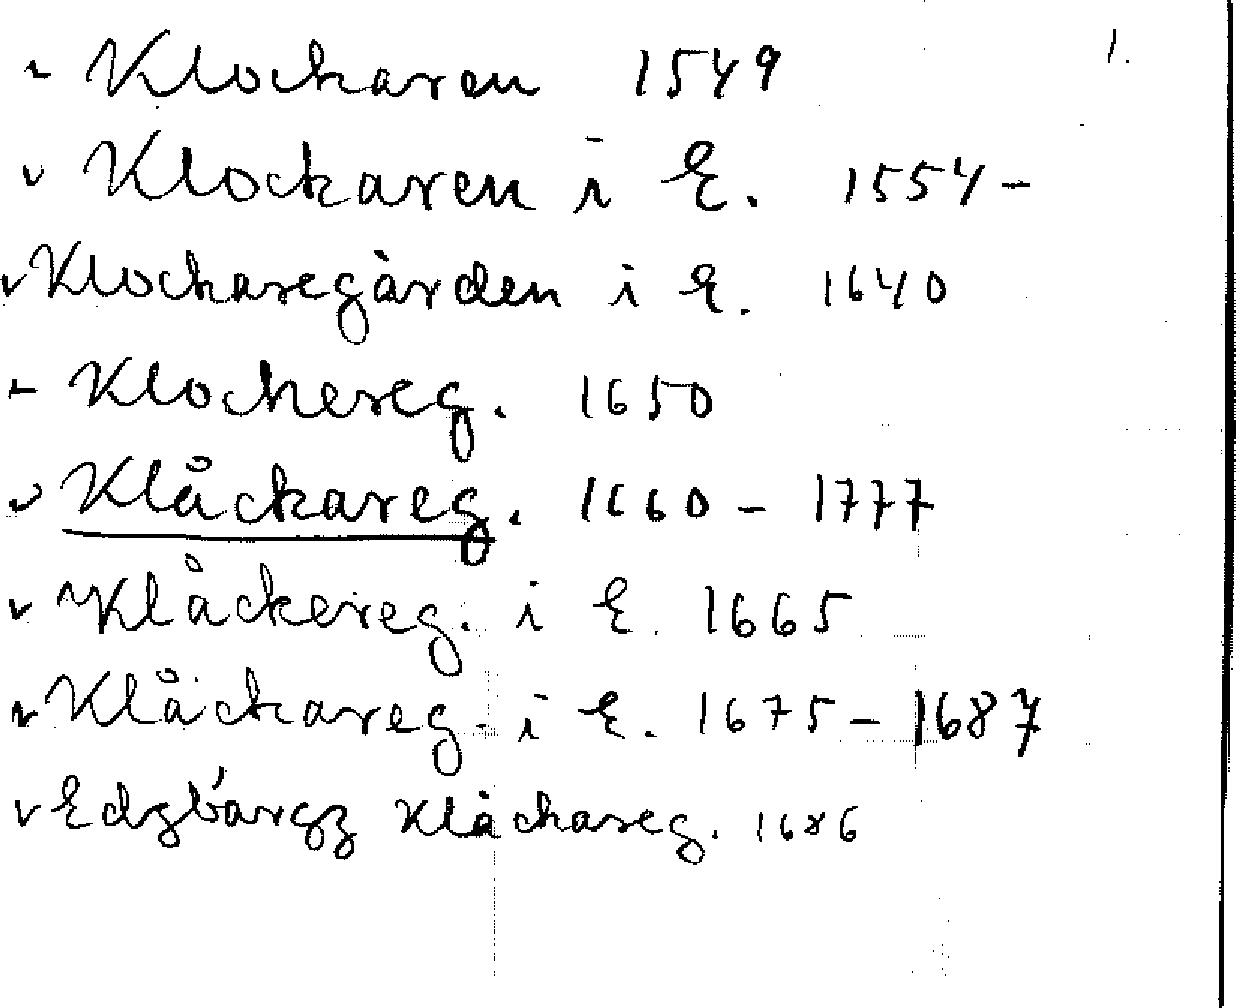 v Klockaren 1549 1.
v Klockaren i E. 1554-
v Klockaregården i E. 1640
v Klockereg. 1650
v Klåckareg. 1660 - 1777
v Klåckereg. i E. 1665
v Klåckareg. i E. 1675 - 1687
v Edzbärgz Klåckareg. 1686